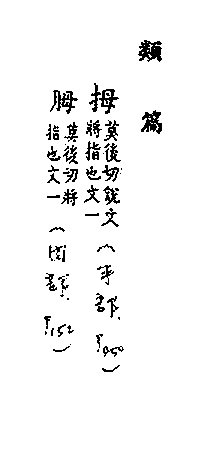 類篇
拇莫後切說文
將指也文一(手部,P450)
胟莫後切將
指也文一(肉部,P152)